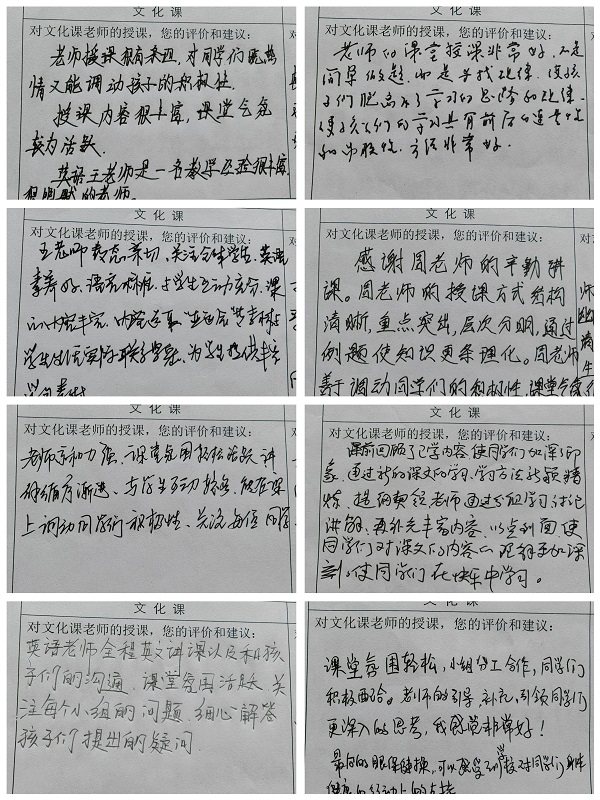 文化课
对文化课老师的授课，您的评价和建议：
老师授课很有表现，对同学们既热
情又能调动孩子的积极性.
授课内容很丰富，课堂气氛
较为活跃.
英语王老师是一名教学经验很丰富
很幽默的老师.
老师的课堂授课非常好，不是
简单的做题，而是寻找规律，使孩
子们
的学习具有前后的连贯性
方法非常好.
文化课
对文化课老师的授课，您的评价和建议：
王老师 亲切，关注全体学生，英语
素养好，语言标准，与学生互动充分，课
学生生活实际联系紧密，为学生提供丰富
对文化课老师的授课，您的评价和建议：
感谢周老师的辛勤讲
课。周老师的授课方式结构
清晰，重点突出，层次分明，通过
例题使知识更条理化。周老师
善于调动同学们的积极性，课堂气氛
对文化课老师的授课，您的评价和建议：
老师亲和力强、课堂氛围轻松活跃，讲
解循序渐进、与学生互动较多，能在课
上调动同学们积极性、关注每位同学
文化课
对文化课老师的授课，您的评价和建议：
课前回顾了已学内容，使同学们加深了印
象，通过新的课文的学习，学习方法新颖精
炼，提纲契领老师通过分组学习讨论
讲解，再补充丰富内容，以点到面，使
同学们对课文的内容的理解更加深
刻。使同学们在快乐中学习。
文化课
对文化课老师的授课，您的评价和建议：
英语老师全程英文讲课以及和孩
子们的沟通，课堂氛围活跃，关
注每个小组的问题，细心解答
孩子们提出的疑问.
文化课
对文化课老师的授课，您的评价和建议：
课堂氛围轻松，小组分工合作，同学们
积极配合。老师的引导、补充，引领同学们
更深入的思考，我感觉非常好！
最后的眼保健操，可以感受到学校对同学们身体
健康的